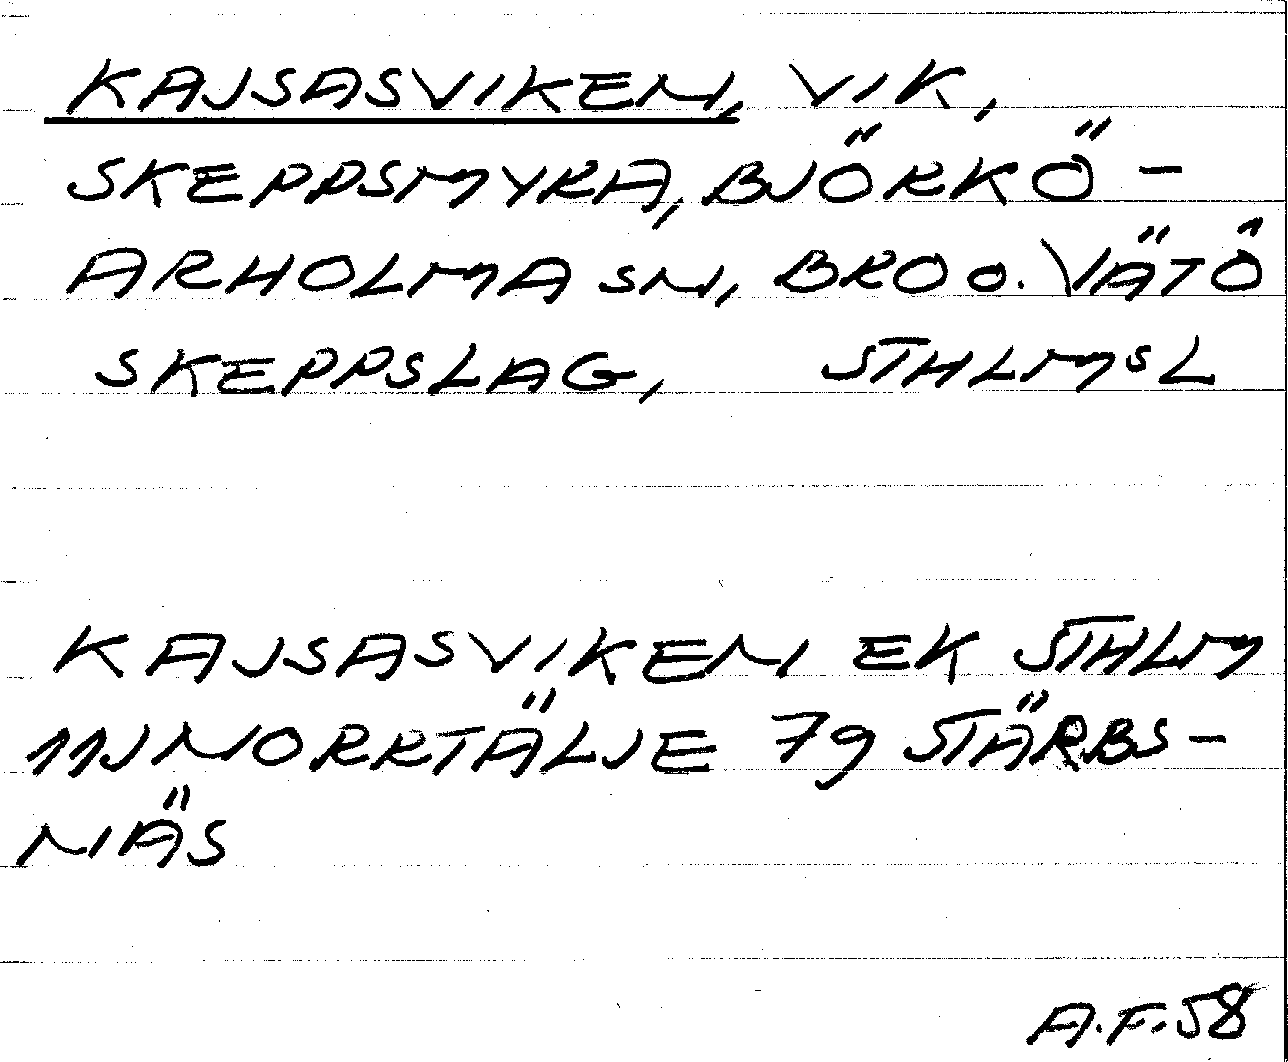 KAJSASVIKEN, VIK,
SKEPPSMYRA, BJÖRKÖ-
ARHOLMA SN, BRO O. VÄTÖ
SKEPPSLAG, STHLMSL
KAJSASVIKEN EK STHLM
11J NORRTÄLJE 79 STÄRBS-
NÄS
A.F.58